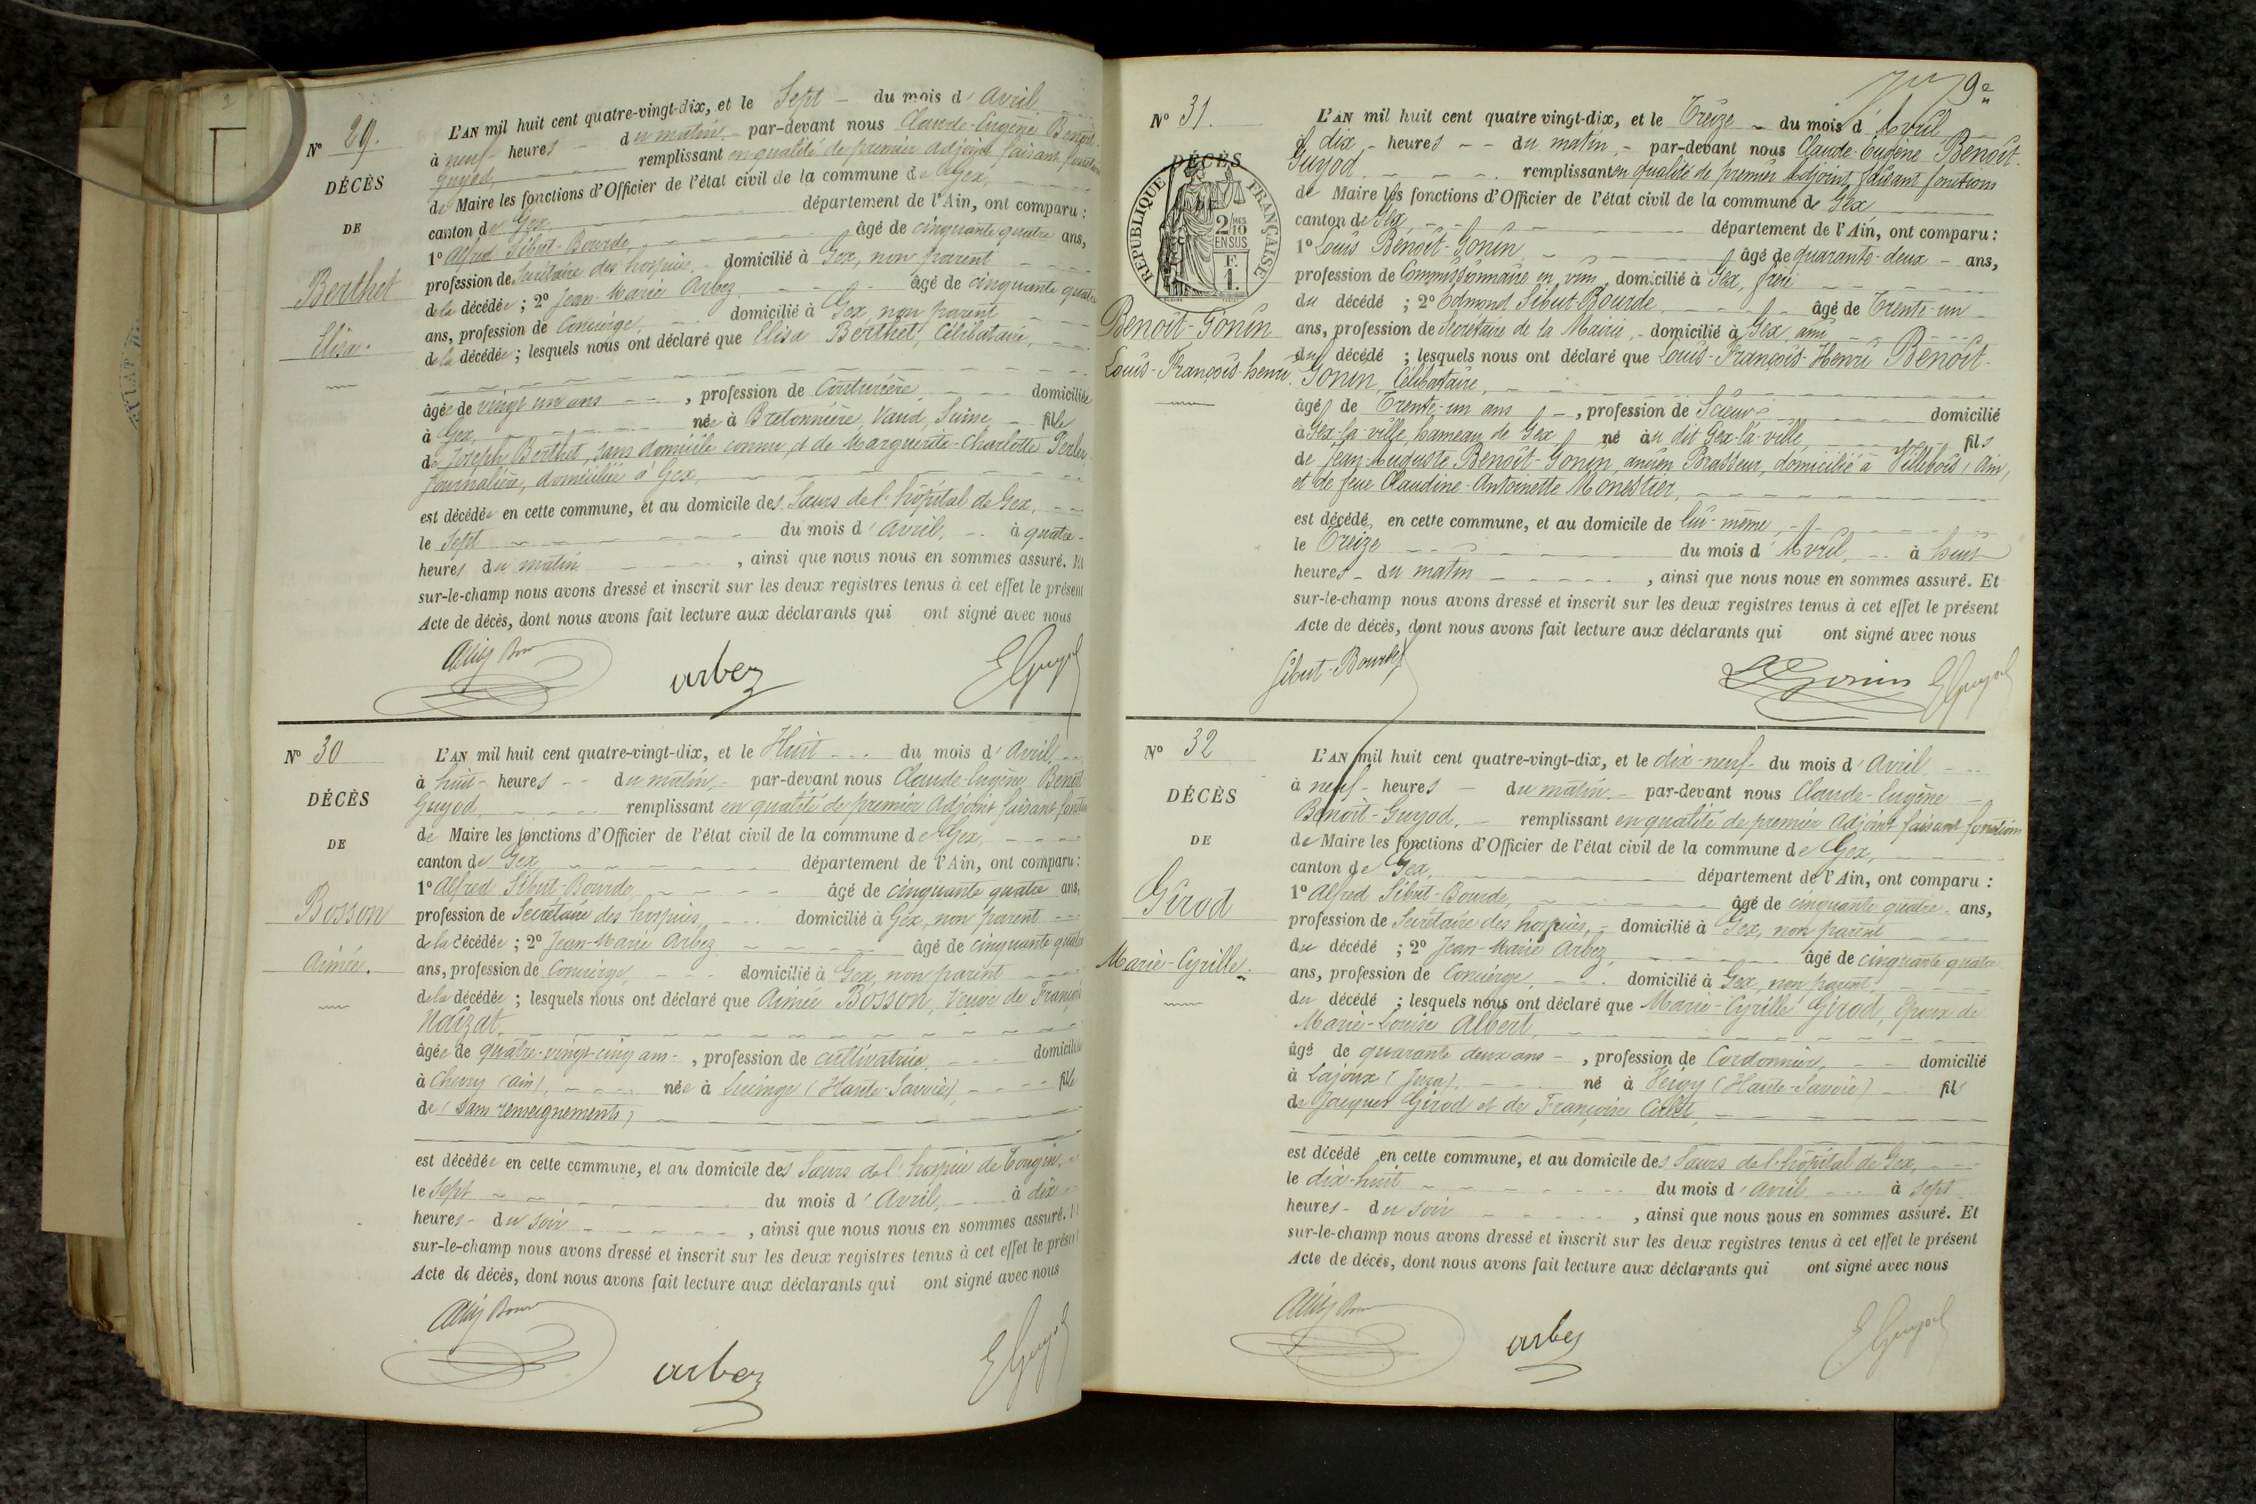 N° 29.
DÉCÈS
DE
Berthet
Elisa.
L'AN mil huit cent quatre-vingt-dix, et le Sept du mois d'Avril
à neuf heures du matin par-devant nous Claude-Eugène Benoit-
Guyod, remplissant en qualité de premier adjoint faisant fonctions
de Maire les fonctions d'Officier de l'état civil de la commune de Gex,
canton de Gex département de l'Ain, ont comparu :
1° Alfred Sibut-Bourde, âgé de cinquante quatre ans,
profession de Secrétaire des hospices, domicilié à Gex, non parent
de la décédée ; 2° Jean-Marie Arbez âgé de cinquante quatre
ans, profession de Concierge, domicilié à Gex, non parent
de la décédée ; lesquels nous ont déclaré que Elisa Berthet, Célibataire,
âgée de vingt un ans, profession de Couturière, domiciliée
à Gex, née à Bretonnière, Vaud, Suisse, fille
de Joseph Berthet, sans domicile connu, et de Marguerite-Charlotte
journalière, domiciliée à Gex,
est décédée en cette commune, et au domicile des Sœurs de l'hôpital de Gex,
le sept du mois d'avril, à quatre
heures du matin, ainsi que nous nous en sommes assuré. Et
sur-le-champ nous avons dressé et inscrit sur les deux registres tenus à cet effet le présent
Acte de décès, dont nous avons fait lecture aux déclarants qui ont signé avec nous
arbez EGuyod
N° 30
DÉCÈS
DE
Bosson
Aimée.
L'AN mil huit cent quatre-vingt-dix, et le Huit du mois d'Avril
à huit heures du matin, par-devant nous Claude-Eugène Benoit
Guyod, remplissant en qualité de premier Adjoint faisant fonctions
de Maire les fonctions d'Officier de l'état civil de la commune de Gex,
canton de Gex département de l'Ain, ont comparu :
1° Alfred Sibut-Bourde, âgé de cinquante quatre ans,
profession de Secrétaire des hospices, domicilié à Gex, non parent
de la décédée ; 2° Jean-Marie Arbez âgé de cinquante quatre
ans, profession de Concierge, domicilié à Gex, non parent
de la décédée ; lesquels nous ont déclaré que Aimée Bosson, Veuve de François
Naizat,
âgée de quatre-vingt-cinq ans, profession de cultivatrice, domiciliée
à Chevry (Ain), née à Lucinge (Haute-Savoie), fille
de (Sans renseignements)
est décédée en cette commune, et au domicile des Sœurs de l'hospice de Tougin,
le sept du mois d'Avril, à dix
heures du soir, ainsi que nous nous en sommes assuré. Et
sur-le-champ nous avons dressé et inscrit sur les deux registres tenus à cet effet le présent
Acte de décès, dont nous avons fait lecture aux déclarants qui ont signé avec nous
arbez EGuyod
9e
N° 31.
DÉCÈS
DE
RÉPUBLIQUE FRANÇAISE
2/10 EN SUS
F. 1.
Benoit-Gonin
Louis-François-henri.
L'AN mil huit cent quatre vingt-dix, et le Treize du mois d'Avril
à dix heures du matin, par-devant nous Claude-Eugène Benoit-
Guyod remplissant en qualité de premier Adjoint, faisant fonctions
de Maire les fonctions d'Officier de l'état civil de la commune de Gex
canton de Gex, département de l'Ain, ont comparu :
1° Louis Benoit-Gonin, âgé de quarante-deux ans,
profession de Commissionnaire en vins, domicilié à Gex, frère
du décédé ; 2° Edmond Sibut-Bourde, âgé de Trente-un
ans, profession de Secrétaire de la Mairie, domicilié à Gex, ami
du décédé ; lesquels nous ont déclaré que Louis-François-Henri Benoit-
Gonin, Célibataire,
âgé de Trente-un ans, profession de Scieur domicilié
à Gex-la-ville, hameau de Gex né au dit Gex-la-ville, fils
de Jean-Auguste Benoit-Gonin, ancien Brasseur, domicilié à Villebois, Ain,
et de feue Claudine-Antoinette Monestier,
est décédé en cette commune, et au domicile de lui-même,
le Treize du mois d'Avril, à huit
heures du matin, ainsi que nous nous en sommes assuré. Et
sur-le-champ nous avons dressé et inscrit sur les deux registres tenus à cet effet le présent
Acte de décès, dont nous avons fait lecture aux déclarants qui ont signé avec nous
Sibut-Bourde Gonin EGuyod
N° 32
DÉCÈS
DE
Girod
Marie-Cyrille.
L'AN mil huit cent quatre-vingt-dix, et le dix-neuf du mois d'Avril
à neuf heures du matin par-devant nous Claude-Eugène
Benoit-Guyod, remplissant en qualité de premier Adjoint faisant fonctions
de Maire les fonctions d'Officier de l'état civil de la commune de Gex,
canton de Gex, département de l'Ain, ont comparu :
1° Alfred Sibut-Bourde, âgé de cinquante quatre ans,
profession de Secrétaire des hospices, domicilié à Gex, non parent
du décédé ; 2° Jean-Marie Arbez, âgé de cinquante quatre
ans, profession de Concierge, domicilié à Gex, non parent,
du décédé ; lesquels nous ont déclaré que Marie-Cyrille Girod, Epoux de
Marie-Louise Albert,
âgé de quarante deux ans, profession de Cordonnier, domicilié
à Lajoux (Jura), né à Veigy (Haute-Savoie) fils
de Jacques Girod et de Françoise
est décédé en cette commune, et au domicile des Sœurs de l'hôpital de Gex,
le dix-huit du mois d'avril à sept
heures du soir, ainsi que nous nous en sommes assuré. Et
sur-le-champ nous avons dressé et inscrit sur les deux registres tenus à cet effet le présent
Acte de décès, dont nous avons fait lecture aux déclarants qui ont signé avec nous
arbez EGuyod